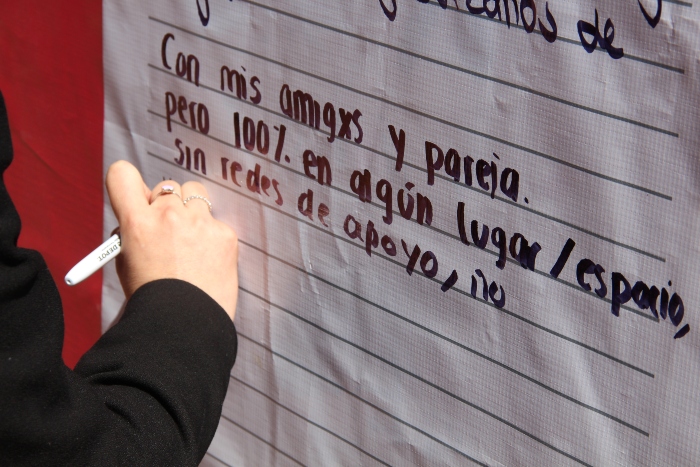 de
Con mis amigxs y pareja.
pero 100% en algún lugar/espacio,
sin redes de apoyo, no
DEPOT